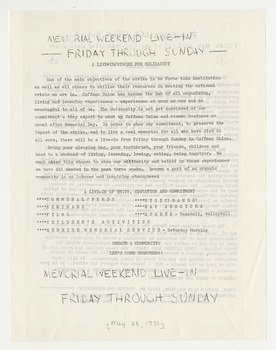 MEMORIAL WEEKEND LIVE-IN
FRIDAY THROUGH SUNDAY
A LIVE-IN/STRIKE FOR SOLIDARITY
One of the main objectives of the strike is to force this institution
as well as all others to utilize their resources in meeting the national
crisis we are in. Coffman Union has become the hub of all organizing,
living and learning experiences - experiences at once so new and so
meaningful to all of us. The University is not yet convinced of our
commitment - they expect to shut up Coffman Union and resume business as
usual after Memorial Day. In order to show our commitment, to preserve the
impact of the strike, and to like a real memorial for all who have died in
all wars, there will be a live-in from Friday through Sunday in Coffman Union.
Bring your sleeping bag, your toothbrush, your friends, children and
food to a weekend of living, learning, loving, eating, being together. We
must show our solidarity and belief in those experiences
we have all shared in the past three weeks. Become a part of an organic
community in an intense and changing atmosphere!
A LIVE-IN OF UNITY, EDUCATION AND COMMITMENT
****COMMUNAL FEEDS ****MUSIC: BANDS
****SEMINARS ****RAP SESSIONS
****FILMS ****SPORTS - baseball, volleyball
****CHILDREN'S ACTIVITIES
****SUNRISE MEMORIAL SERVICE - Saturday Morning
CREATE A COMMUNITY
LET'S COME TOGETHER!
MEMORIAL WEEKEND LIVE-IN
FRIDAY THROUGH SUNDAY
[May 28, 1970]